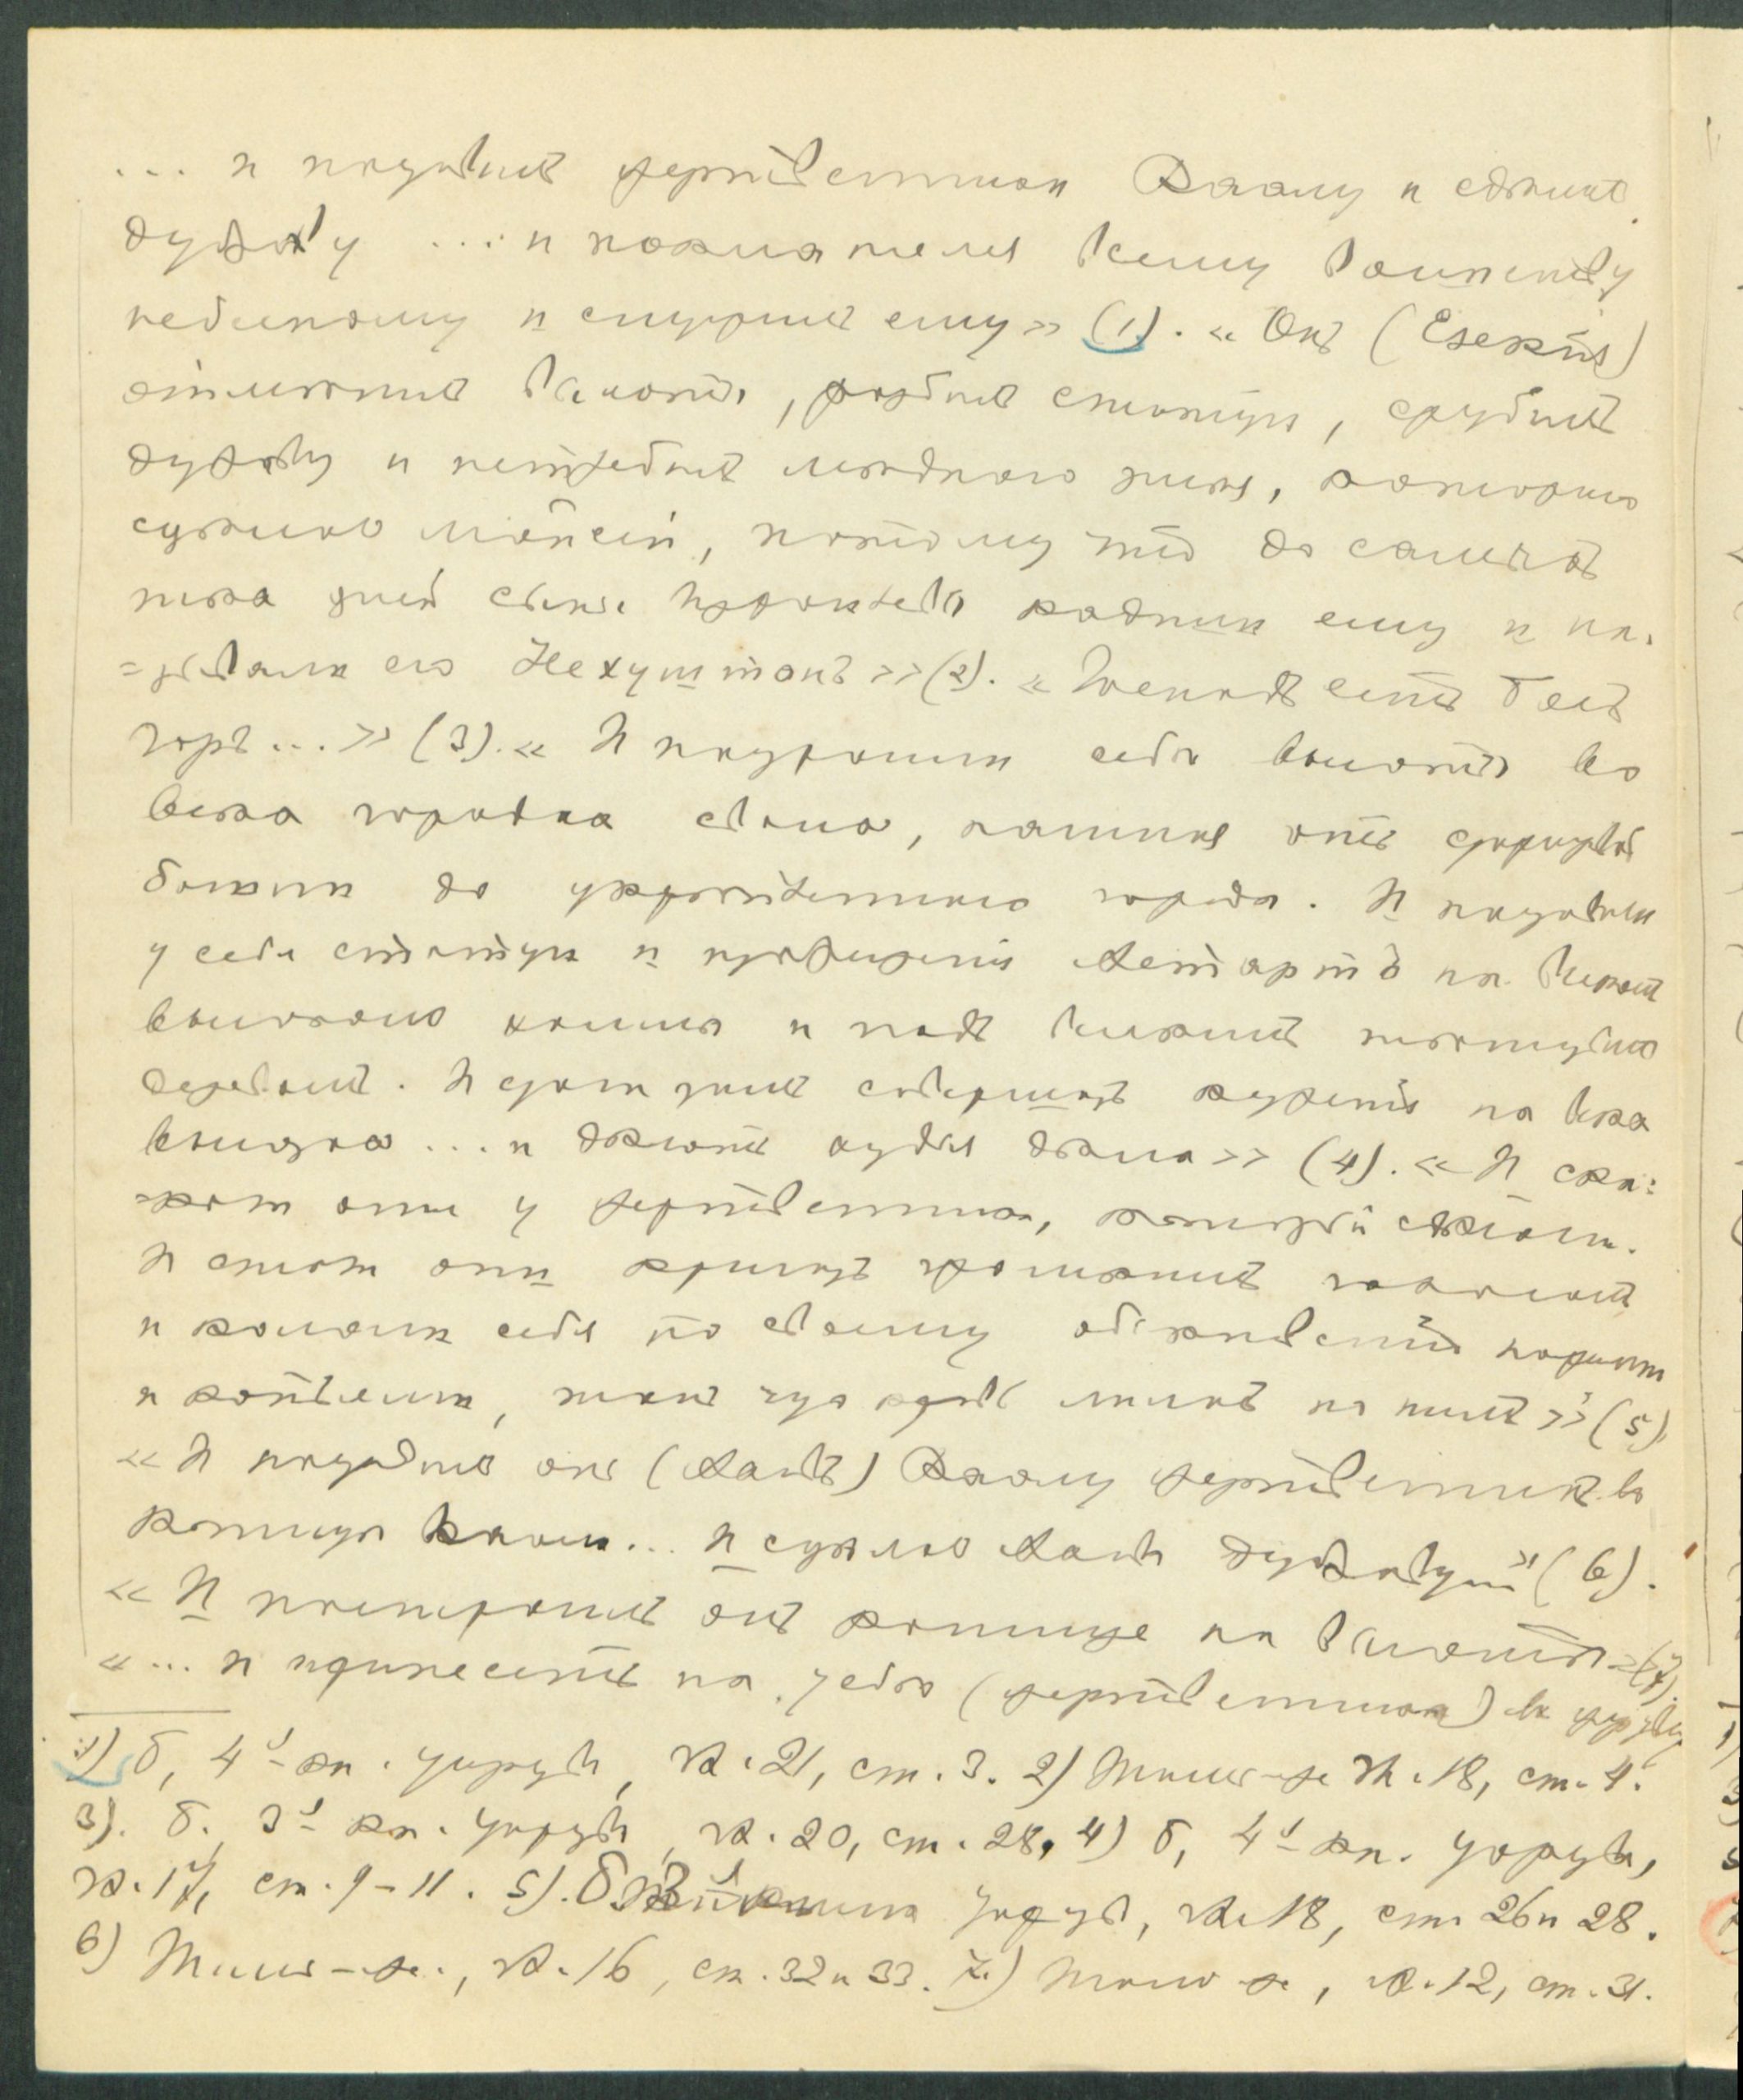 ... и поставилъ жертвенники Ваалу и сдѣлалъ
дубраву ... и поклонялся всему воинству
небесному и служилъ ему» (1). «Онъ (Езекія)
отмѣнилъ высоты, разбилъ статуи, срубилъ
дубраву и истребилъ мѣднаго змѣя, котораго
сдѣлалъ Моисей, потому что до самыхъ
тѣхъ дней сыны Израилевы кадили ему и на-
=зывали его Нехуштанъ» (2). «Господь есть Богъ
горъ...» (3). «И построили себѣ высоты во
всѣхъ городахъ своихъ, начиная отъ сторожевой
башни до укрѣпленнаго города. И поставили
у себя статуи и изображенія Астартъ на всякомъ
высокомъ холмѣ и подъ всякимъ тѣнистымъ
деревомъ. И стали тамъ совершать куренія на всѣхъ
высотахъ ... и дѣлали худыя дѣла» (4). «И ска-
=кали они у жертвенника, который сдѣлали.
И стали они кричать громкимъ голосомъ
и кололи себя по своему обыкновенію ножами
и копьями, такъ что кровь лилась по нимъ» (5)
«И поставилъ онъ (Ахавъ) Ваалу жертвенникъ въ
капищѣ Ваала... И сдѣлалъ Ахавъ дубраву» (6).
«И построилъ онъ капище на высотѣ» (7).
«... и принесетъ на тебѣ (жертвенникъ) въ жертву
1) б, 4я кн. Царствъ, гл. 21, ст. 3. 2) Тамъ-же гл. 18, ст. 4.
3). б. 3я кн. Царствъ, гл. 20, ст. 28. 4) б, 4я кн. Царствъ,
гл. 17, ст. 9-11. 5). б. 3я книга Царствъ, гл. 18, ст. 26 и 28.
6) Тамъ-же., гл. 16, ст. 32 и 33. 7.) Тамъ же, гл. 12, ст. 31.